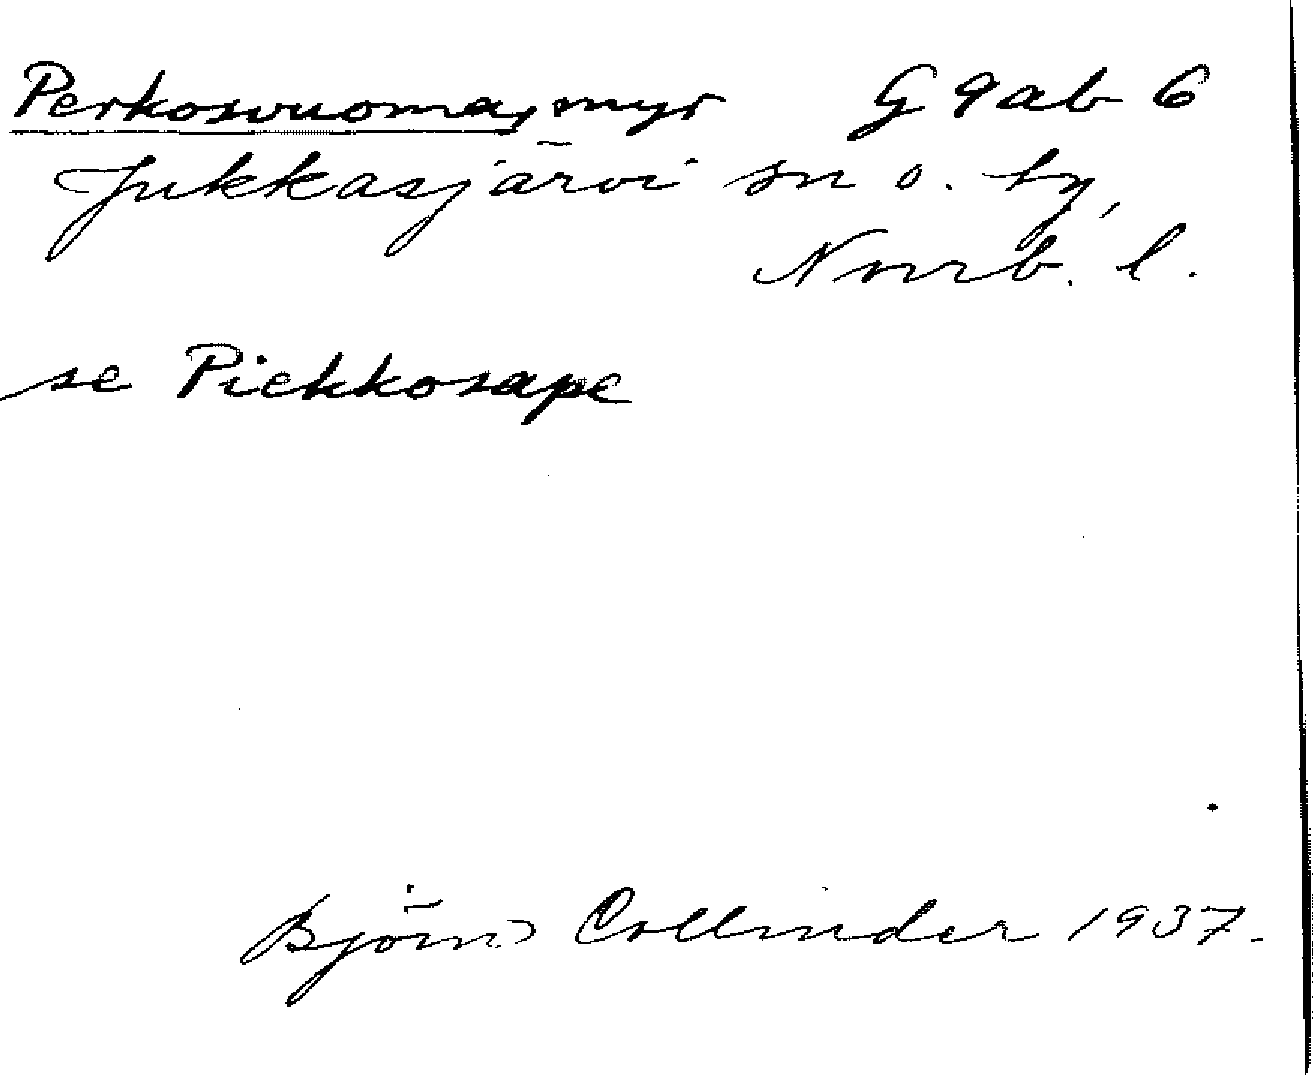 Perkosvuoma, myr G 9 ab 6
Jukkasjärvi sn o. by,
Norrb. l.
se Piekkosape
Björn Collinder 1937.